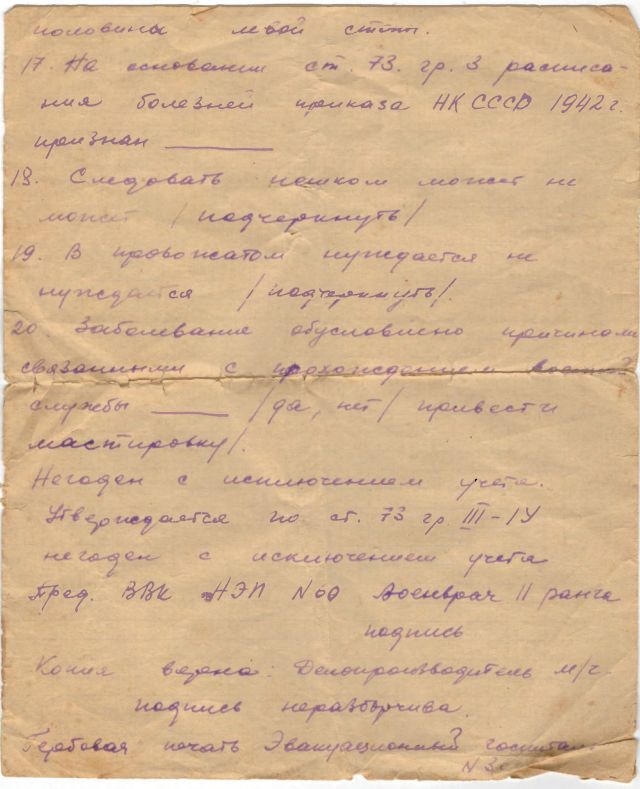 половина левой стоп.
17. На основании ст. 73. гр. 3 расписа-
ния болезней приказа НКСССР 1942 г.
признан ______
18. Следовать пешком может не
может /подчеркнуть/
19. В провожатом нуждается не
нуждается /подчеркнуть/.
20. Заболевание обусловлено причинами
связанными с прохождением
службы ______ /да, нет/ привести
мастировку/.
Негоден с исключением учета.
Утверждается по ст. 73 гр III-IУ
негоден с исключением учета
Пред. ВВК НЭП N 60 Военврач II ранга
подпись
Копия верна: Делопроизводитель м/ч.
подпись неразборчива.
Гербовая печать Эвакуационный госпиталь
N